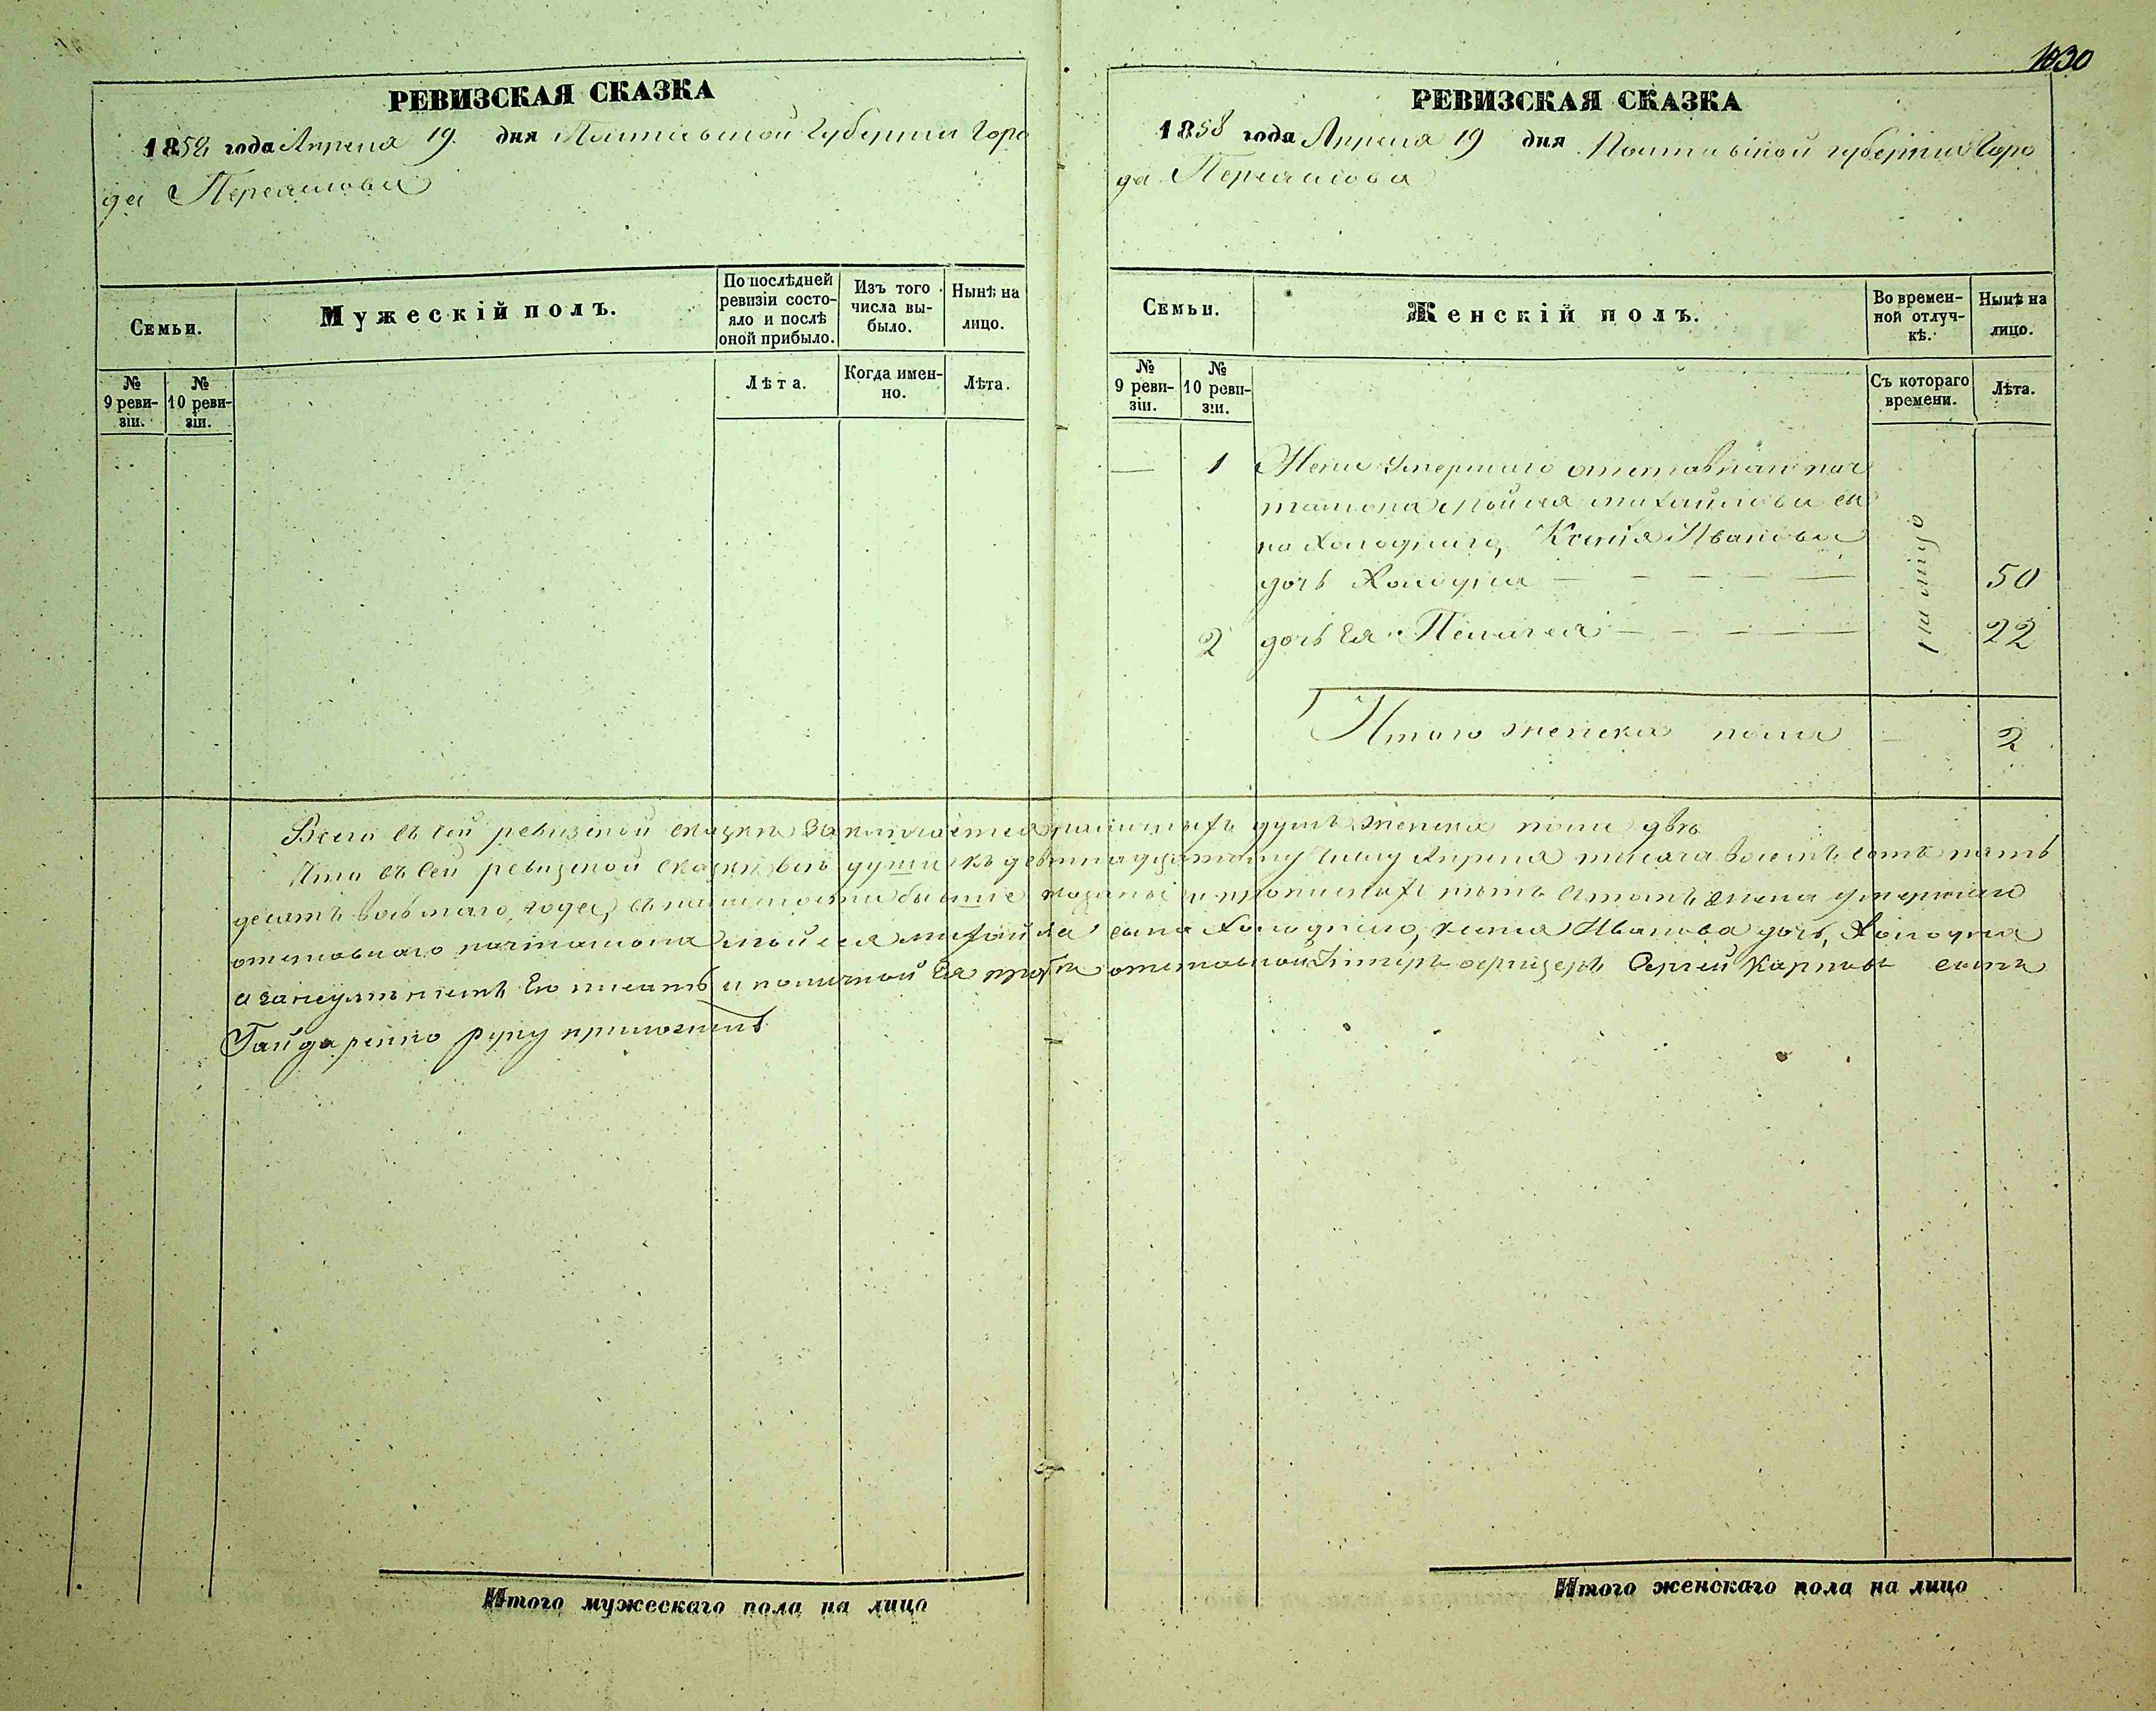 1030
РЕВИЗСКАЯ СКАЗКА
1858 года Апреля 19. дня Полтавской Губернии Горо
да Переяслова
Семьи.
Мужескій полъ.
По послѣдней ревизіи состо-
яло и послѣ
оной прибыло.
Изъ того
числа вы-
было.
Нынѣ на
лицо.
№
9 реви-
зіи.
№
10 реви-
зіи.
Лѣта.
Когда имен-
но.
Лѣта.
Итого мужескаго пола на лицо
РЕВИЗСКАЯ СКАЗКА
1858 года Апреля 19 дня Полтавской губерніи Горо
да Переяслова
Семьи.
Женскій полъ.
Во времен-
ной отлуч-
кѣ.
Нынѣ на
лицо.
№
9 реви-
зіи.
№
10 реви-
зіи.
Съ котораго
времени.
Лѣта.
— 1 Жена умершаго отставнаго поч
талиона Мойсея михайлова сы
на Холоднаго, Ксенія Иванова
дочь Холодна — — — — — 50
2 дочь Ея Пелагея — — — — 22
на лицо
Итого женска пола — 2
Всего въ сей ревизской сказке заключается наличныхъ душъ женска пола двѣ
Что въ сей ревизской сказки все души къ девятнадцатому числу Апреля тысяча восемь сотъ пять
десятъ восмаго года, въ наличности бывшие показаны и прописных нетъ въ томъ жена умершаго
отставнаго почталиона мойсея михайла сына Холоднаго, ксения Иванова дочь, Холодна
а за неуменіемъ Ею писать и по личной Ея прозбе отставной Унтеръ офицеръ Сергей Карповъ сынъ
Гайдаренко руку приложилъ
Итого женскаго пола на лицо